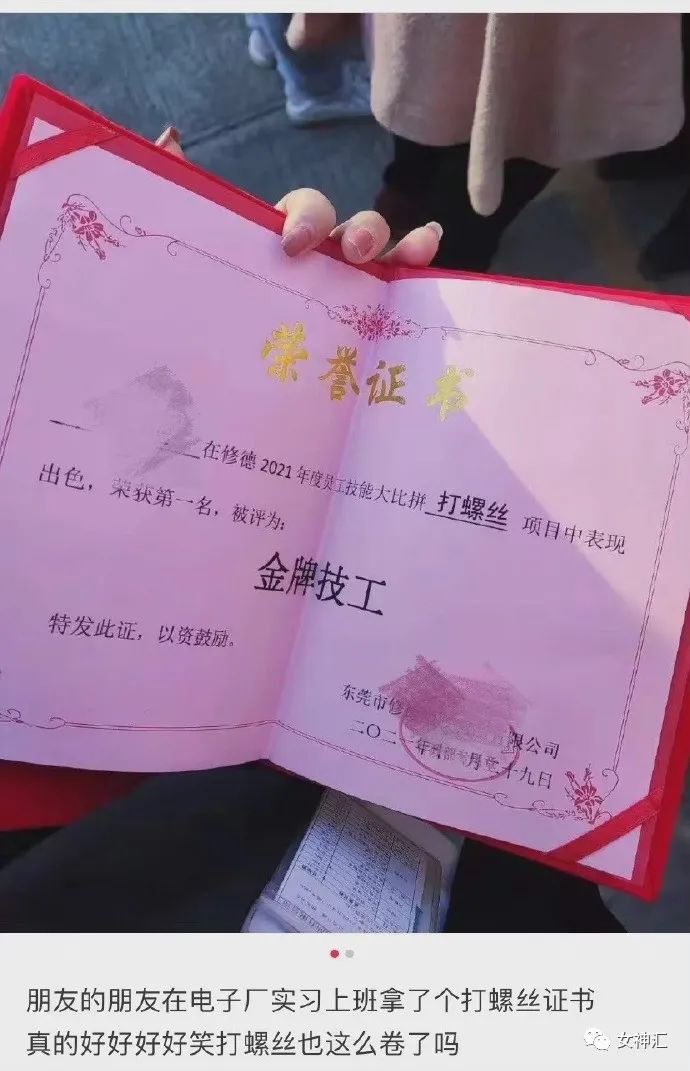 荣誉证书
在修德2021年度员工技能大比拼 打螺丝 项目中表现
出色，荣获第一名，被评为：
金牌技工
特发此证，以资鼓励。
东莞市修 有限公司
二〇二 年 月 十九日
朋友的朋友在电子厂实习上班拿了个打螺丝证书
真的好好好好笑打螺丝也这么卷了吗
女神汇